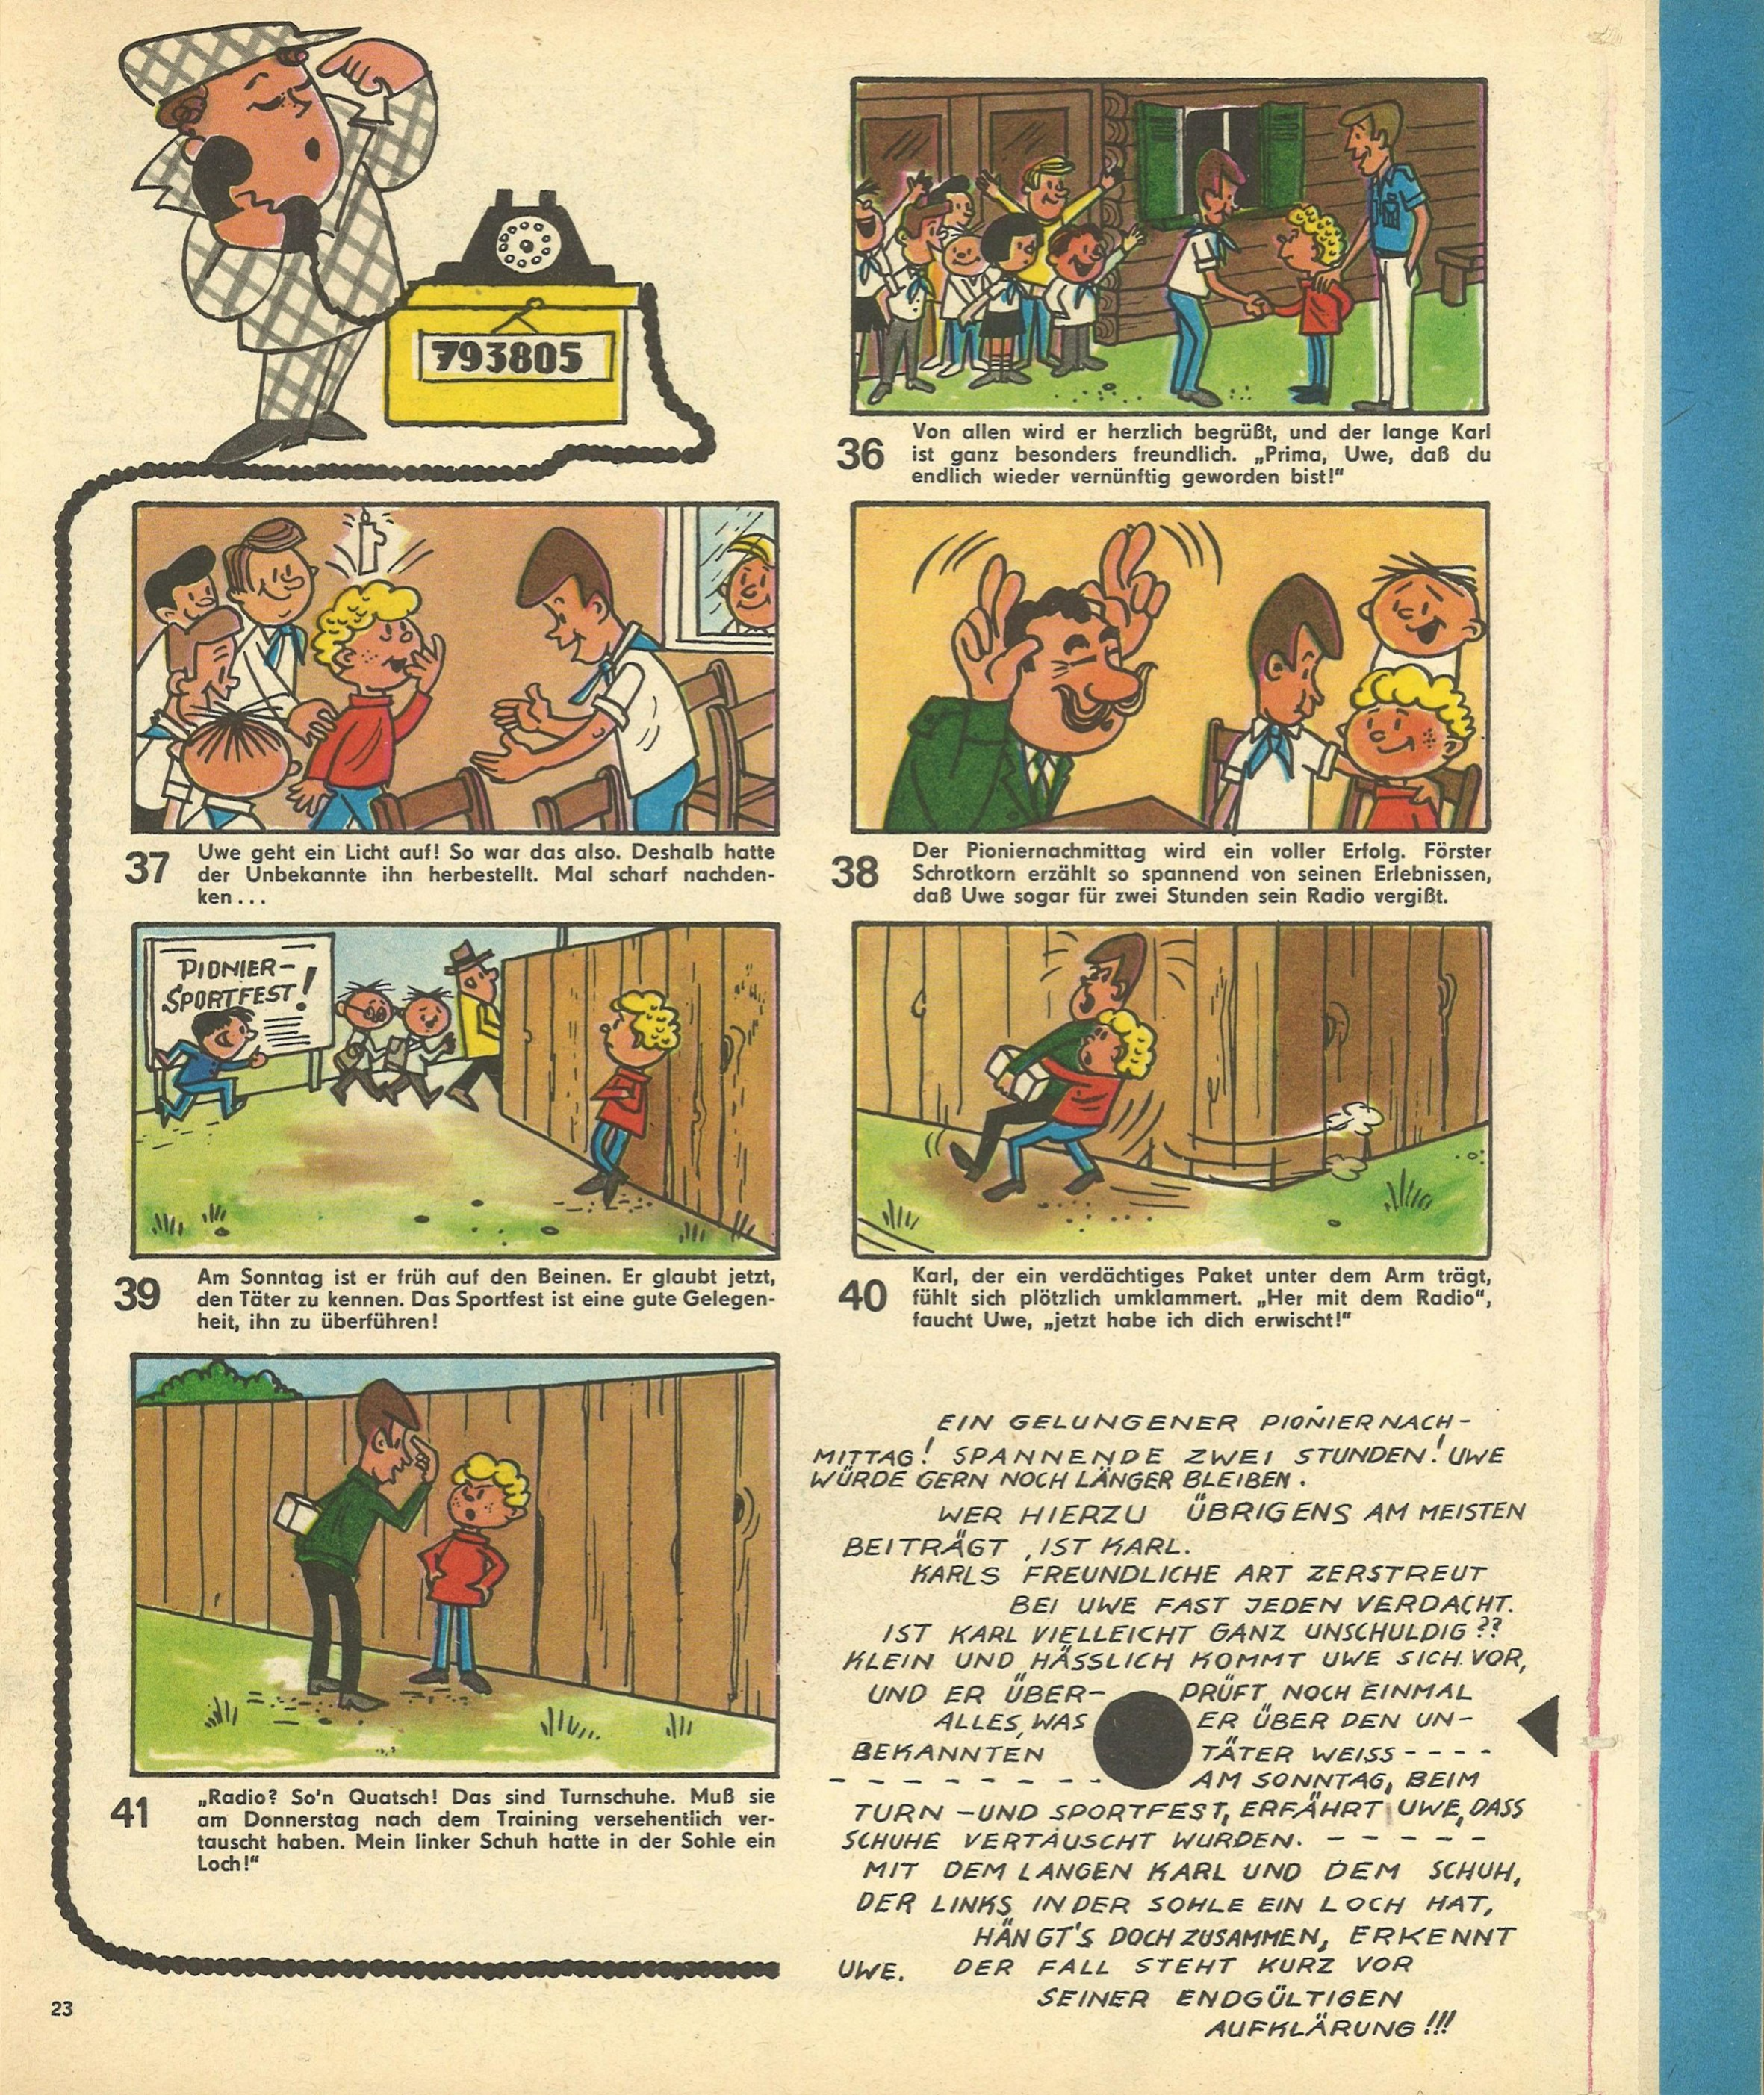 793805
36
Von allen wird er herzlich begrüßt, und der lange Karl
ist ganz besonders freundlich. „Prima, Uwe, daß du
endlich wieder vernünftig geworden bist!“
37
Uwe geht ein Licht auf! So war das also. Deshalb hatte
der Unbekannte ihn herbestellt. Mal scharf nachden-
ken...
38
Der Pioniernachmittag wird ein voller Erfolg. Förster
Schrotkorn erzählt so spannend von seinen Erlebnissen,
daß Uwe sogar für zwei Stunden sein Radio vergißt.
PIONIER-
SPORTFEST!
39
Am Sonntag ist er früh auf den Beinen. Er glaubt jetzt,
den Täter zu kennen. Das Sportfest ist eine gute Gelegen-
heit, ihn zu überführen!
40
Karl, der ein verdächtiges Paket unter dem Arm trägt,
fühlt sich plötzlich umklammert. „Her mit dem Radio“,
faucht Uwe, „jetzt habe ich dich erwischt!“
41
„Radio? So'n Quatsch! Das sind Turnschuhe. Muß sie
am Donnerstag nach dem Training versehentlich ver-
tauscht haben. Mein linker Schuh hatte in der Sohle ein
Loch!“
EIN GELUNGENER PIONIERNACH-
MITTAG! SPANNENDE ZWEI STUNDEN! UWE
WÜRDE GERN NOCH LÄNGER BLEIBEN.
WER HIERZU ÜBRIGENS AM MEISTEN
BEITRÄGT, IST KARL.
KARLS FREUNDLICHE ART ZERSTREUT
BEI UWE FAST JEDEN VERDACHT.
IST KARL VIELLEICHT GANZ UNSCHULDIG??
KLEIN UND HÄSSLICH KOMMT UWE SICH VOR,
UND ER ÜBER- PRÜFT NOCH EINMAL
ALLES, WAS ER ÜBER DEN UN-
BEKANNTEN TÄTER WEISS - - - -
- - - - - - - - - AM SONNTAG, BEIM
TURN-UND SPORTFEST, ERFÄHRT UWE, DASS
SCHUHE VERTAUSCHT WURDEN. - - - - -
MIT DEM LANGEN KARL UND DEM SCHUH,
DER LINKS IN DER SOHLE EIN LOCH HAT,
HÄNGT'S DOCH ZUSAMMEN, ERKENNT
UWE. DER FALL STEHT KURZ VOR
SEINER ENDGÜLTIGEN
AUFKLÄRUNG!!!
23